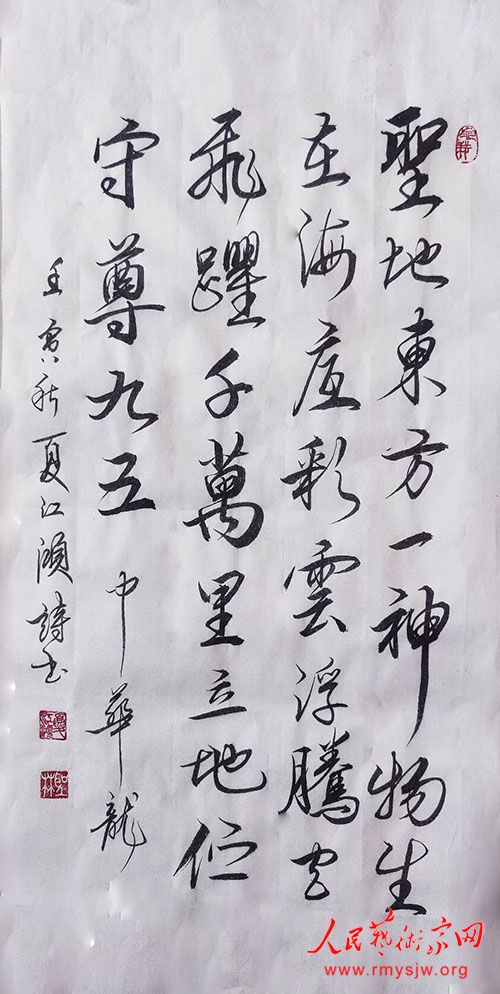 聖地東方一神物生
在海底彩雲浮騰空
飛躍千萬里立地位
守尊九五 中華龍
壬寅秋夏江濵詩书
人民藝術家网
www.rmysjw.org